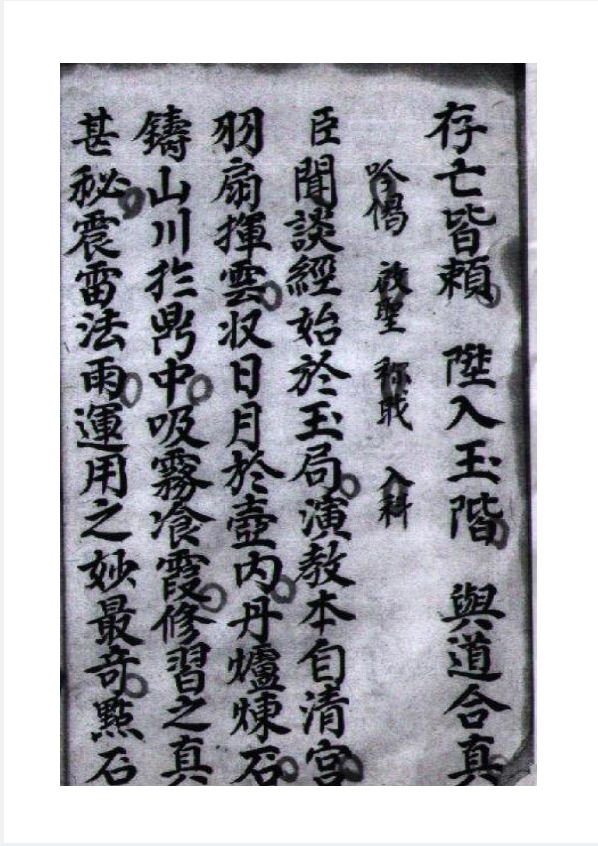 存亡皆頼　陞入玉階　與道合真
吟偈　啟聖　称职　入科
臣聞談經始於玉局演教本自清宮
羽扇揮雲収日月於壺内丹爐煉石
鑄山川於鼎中吸霧飡霞修習之真
甚秘震雷法雨運用之妙最奇點石